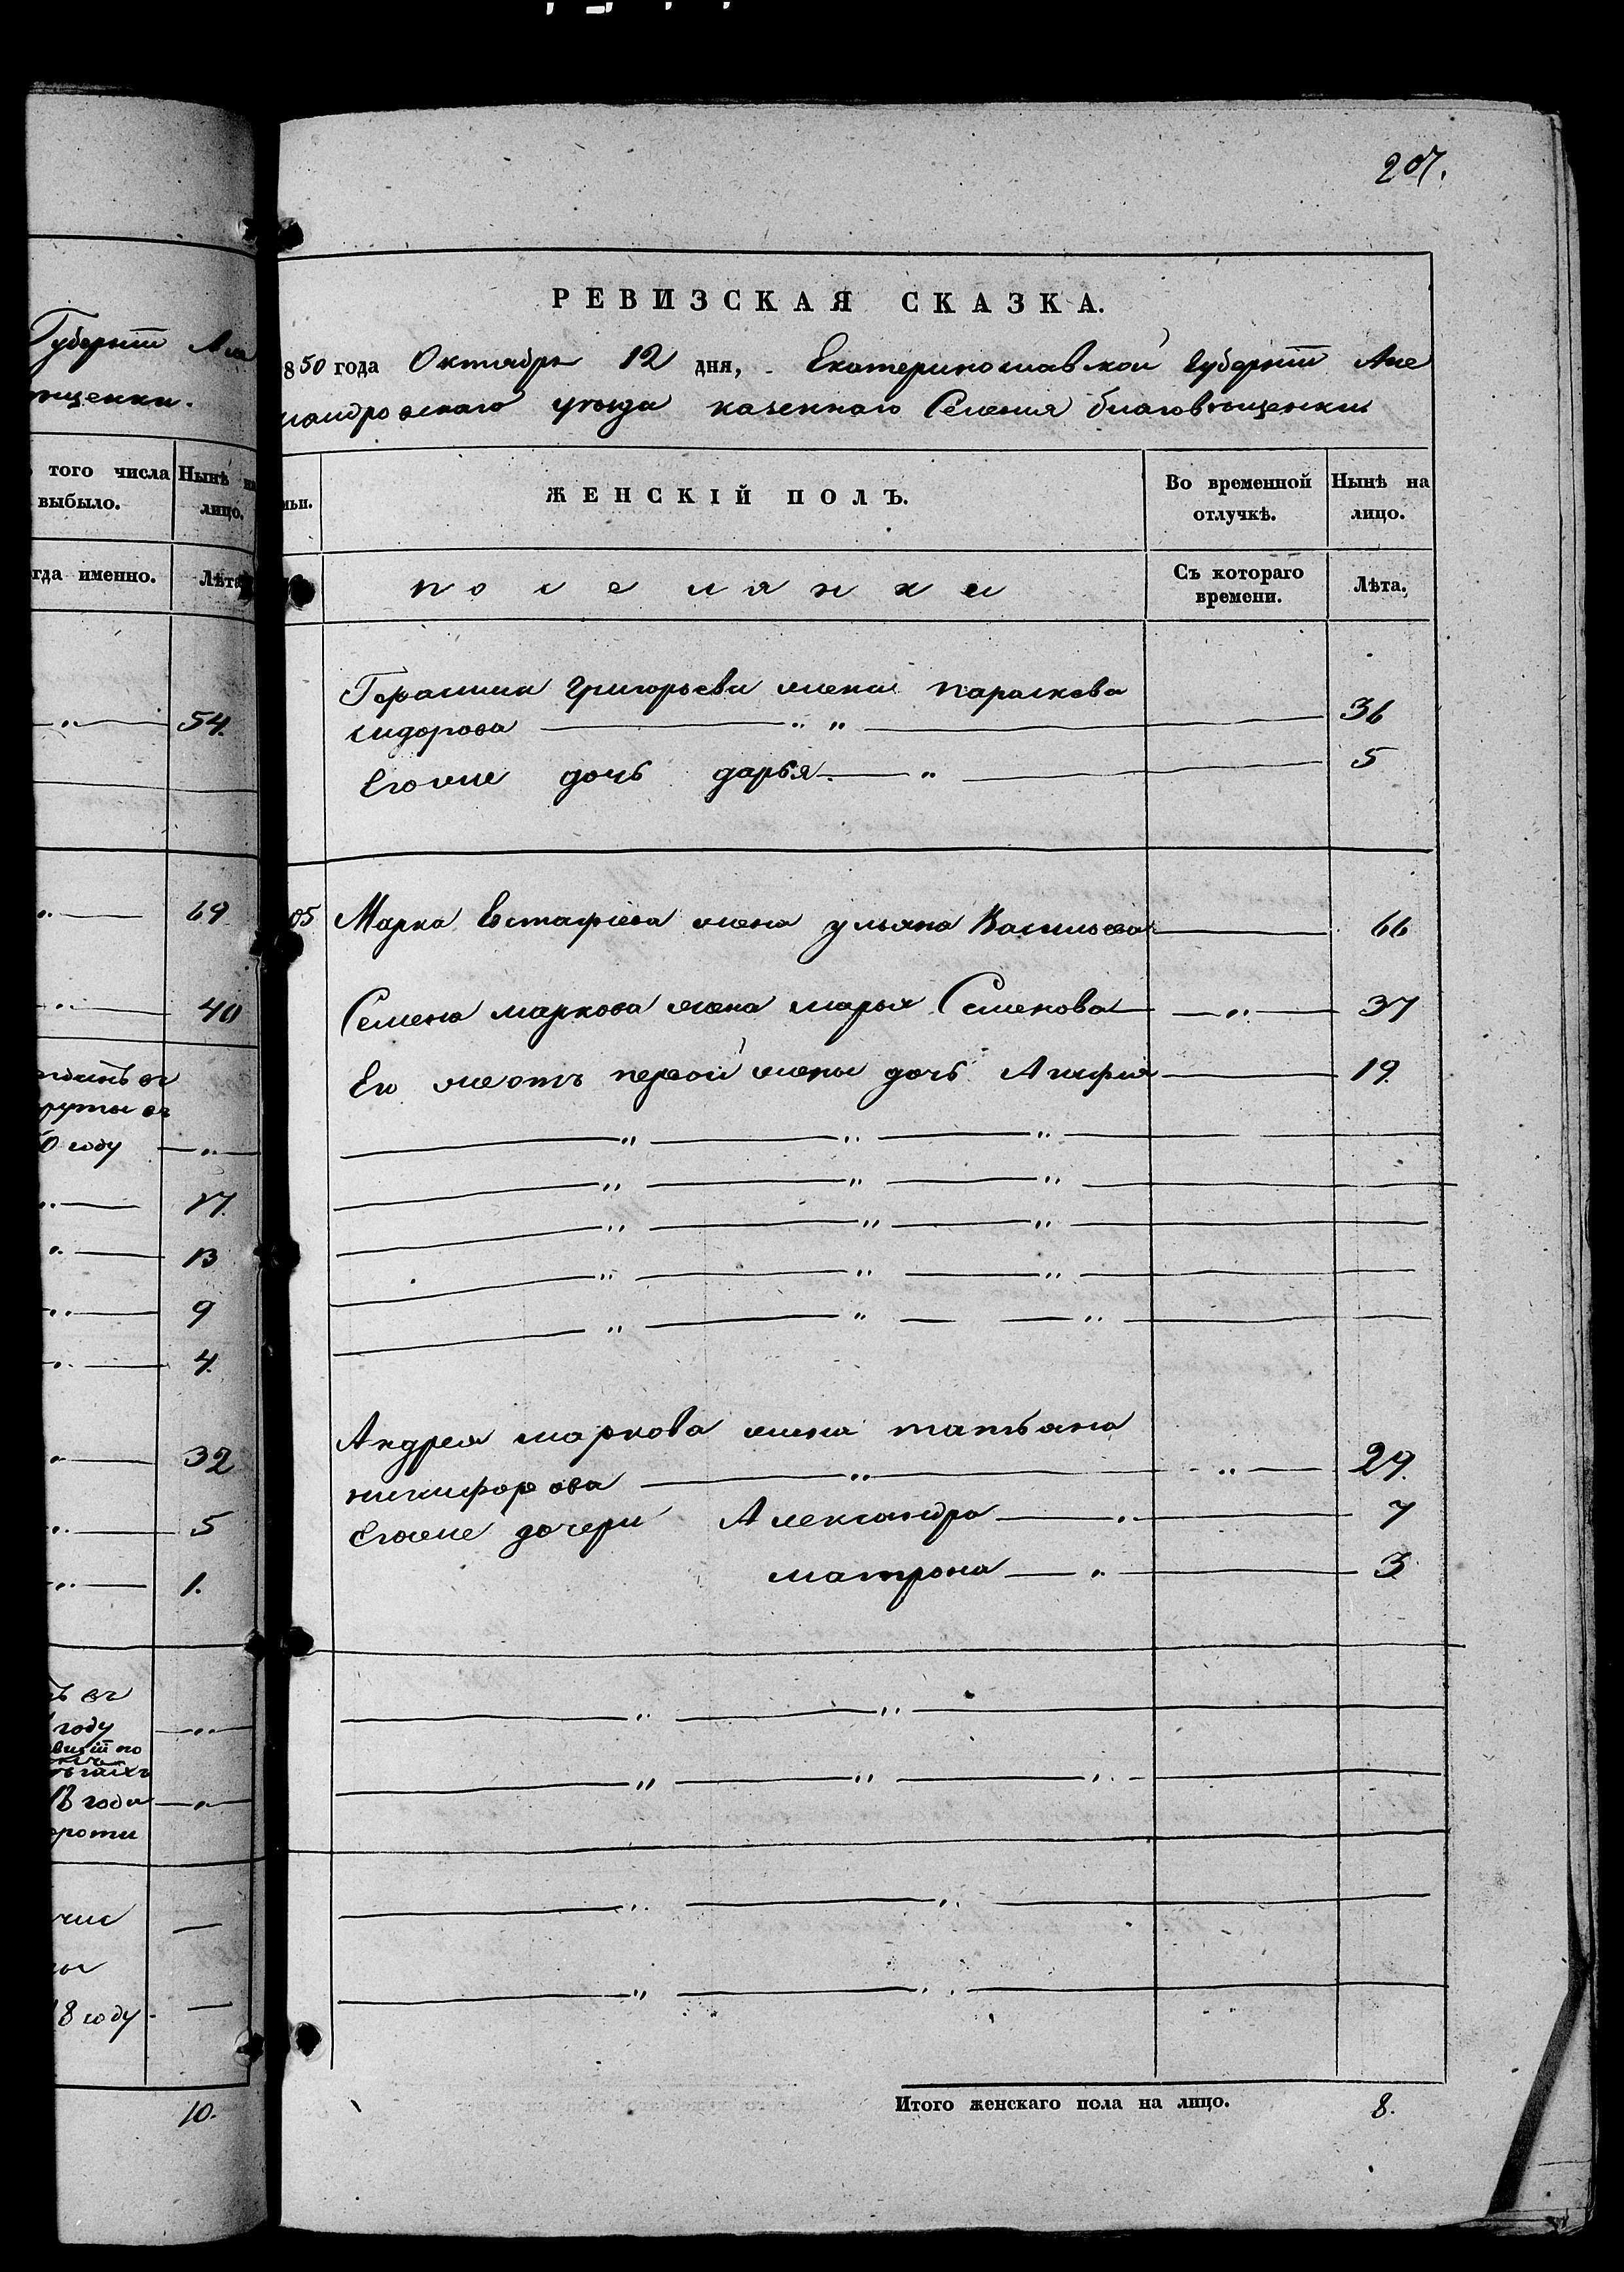 Губернiи Але
щенки.
того числа Нынѣ на
выбыло. лицо.
гда именно. Лѣта
54.
69
40
году
17.
13
9
4.
32
5
1.
году
годи
8 году.
10.
207.
РЕВИЗСКАЯ СКАЗКА.
850 года Октября 12 дня, Екатеринославской Губернiи Але
ксандровскаго уѣзда казеннаго Селенiя благовѣщенки
ьи. ЖЕНСКIЙ ПОЛЪ. Во временной Нынѣ на
отлучкѣ. лицо.
поселянки Съ котораго Лѣта.
времени.
Герасима Григорьева жена параскева
сидорова " 36
Его же дочь дарья " 5
05 Марка Евстафiева жена ульяна Васильева 66
Семена маркова жена марья Семенова " 37
Его же отъ первой жены дочь Агафия 19.
Андрея маркова жена татьяна
никифорова " " 29.
Его же дочери Александра " 7
матрона " 3
Итого женскаго пола на лицо. 8.